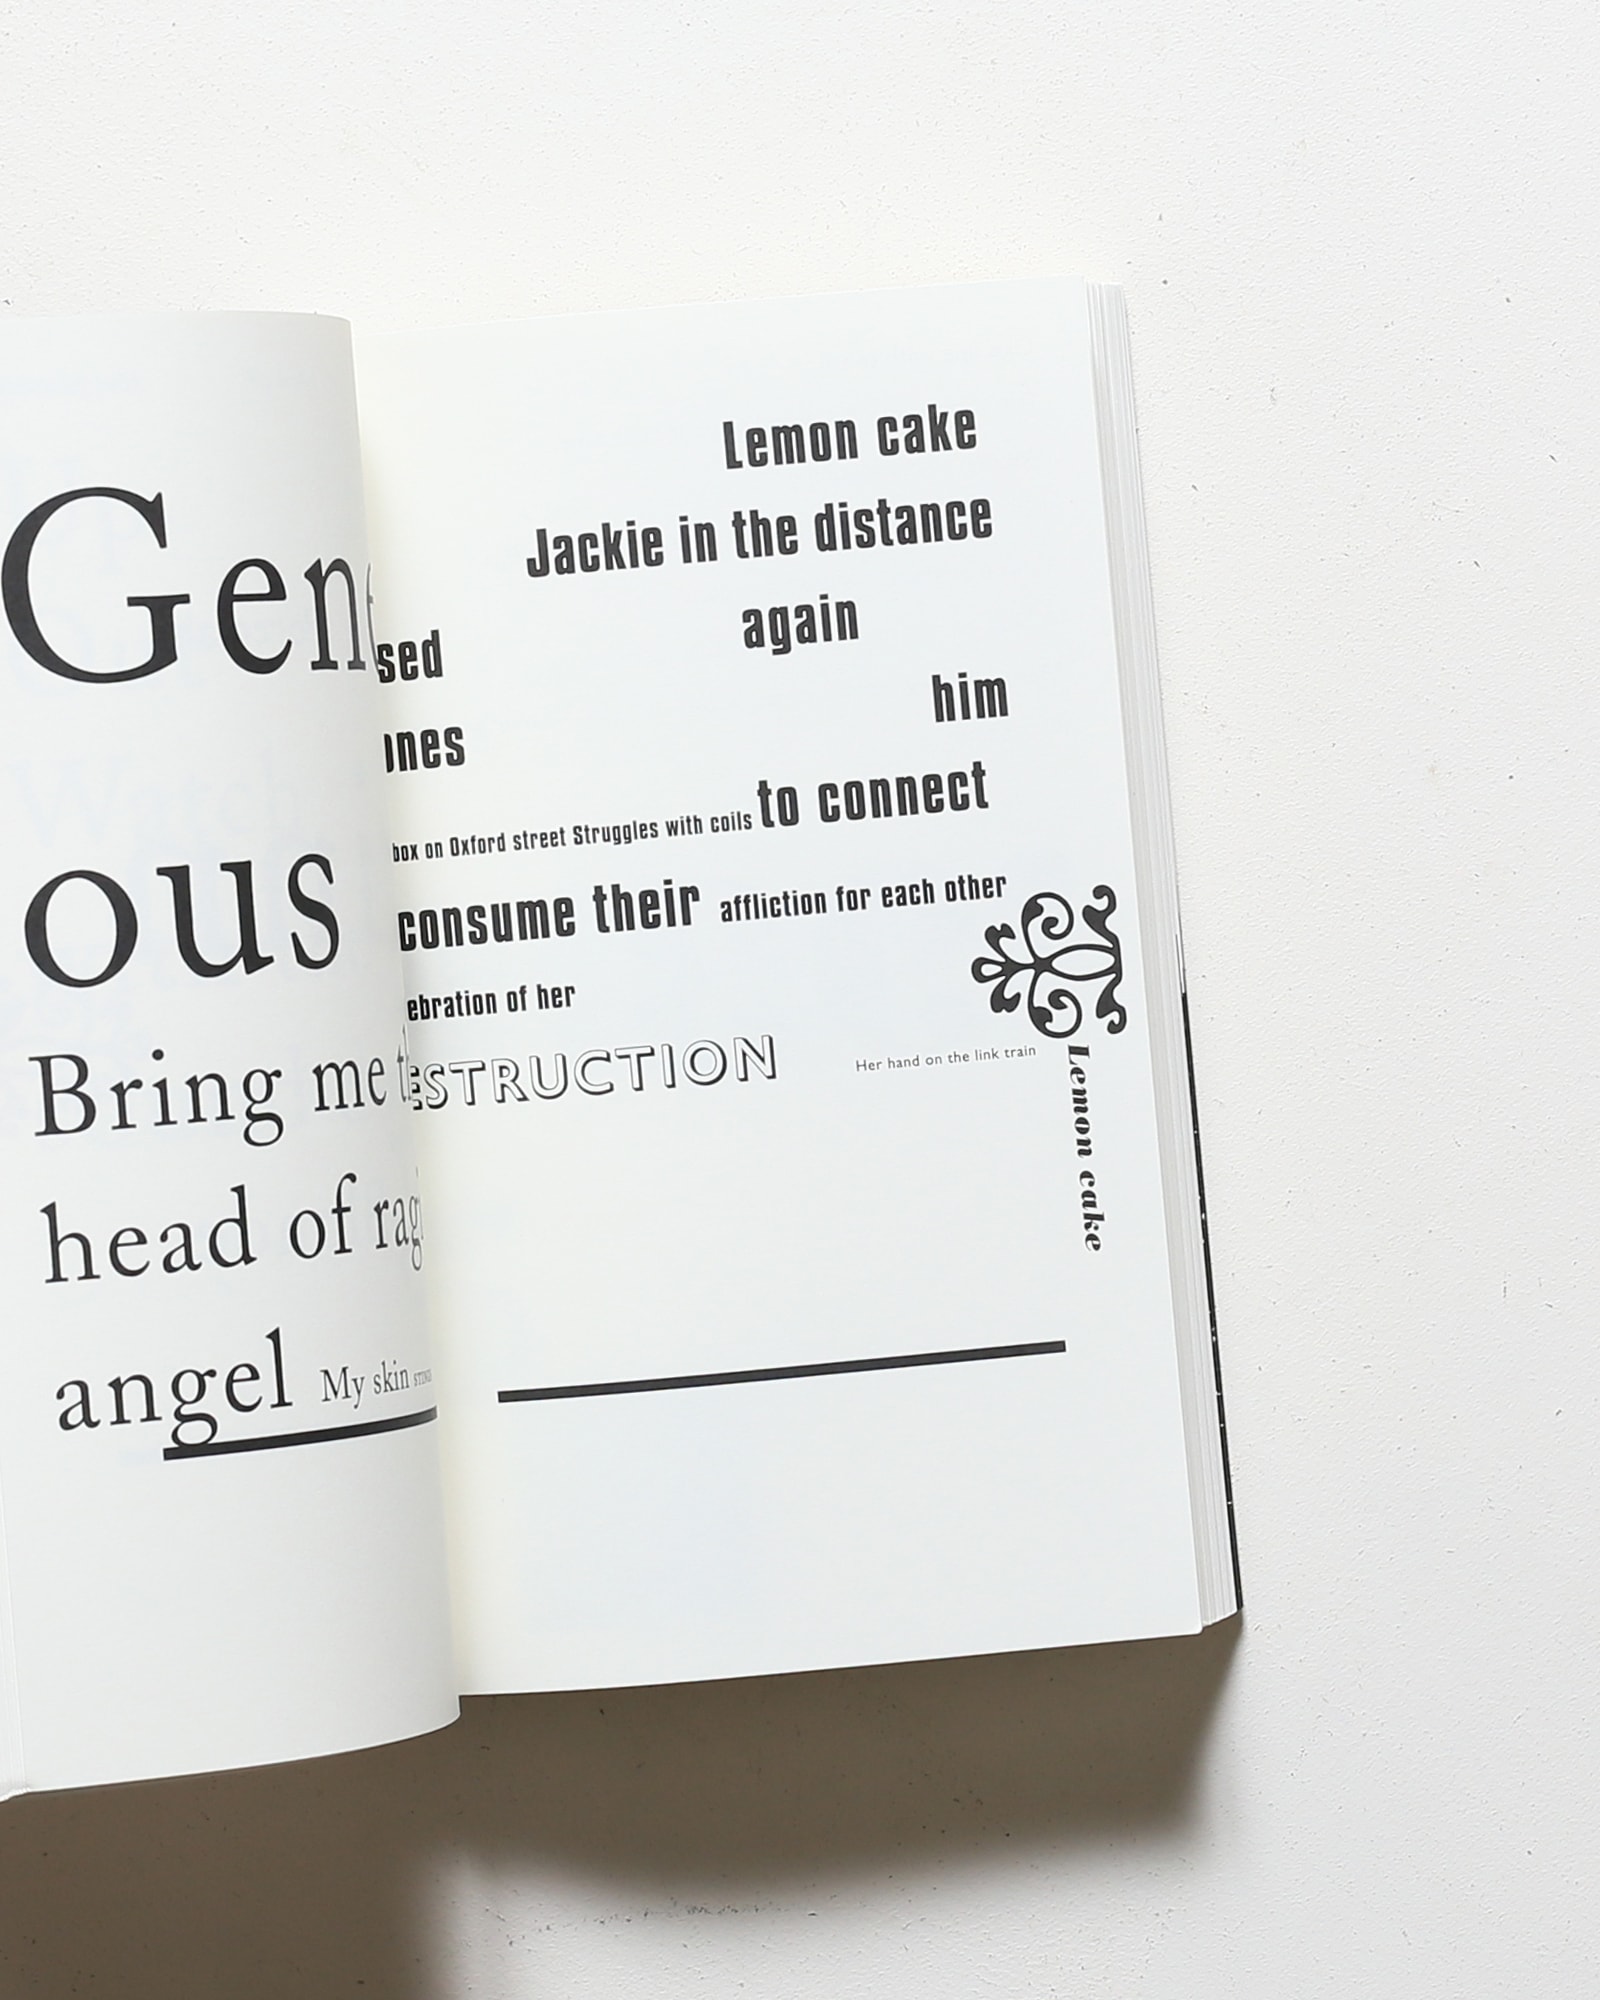 Gen
ous
Bring me
head of
angel My skin
Lemon cake
Jackie in the distance
again
sed
him
to connect
box on Oxford street Struggles with coils
consume their affliction for each other
ebration of her
STRUCTION
Her hand on the link train
Lemon cake